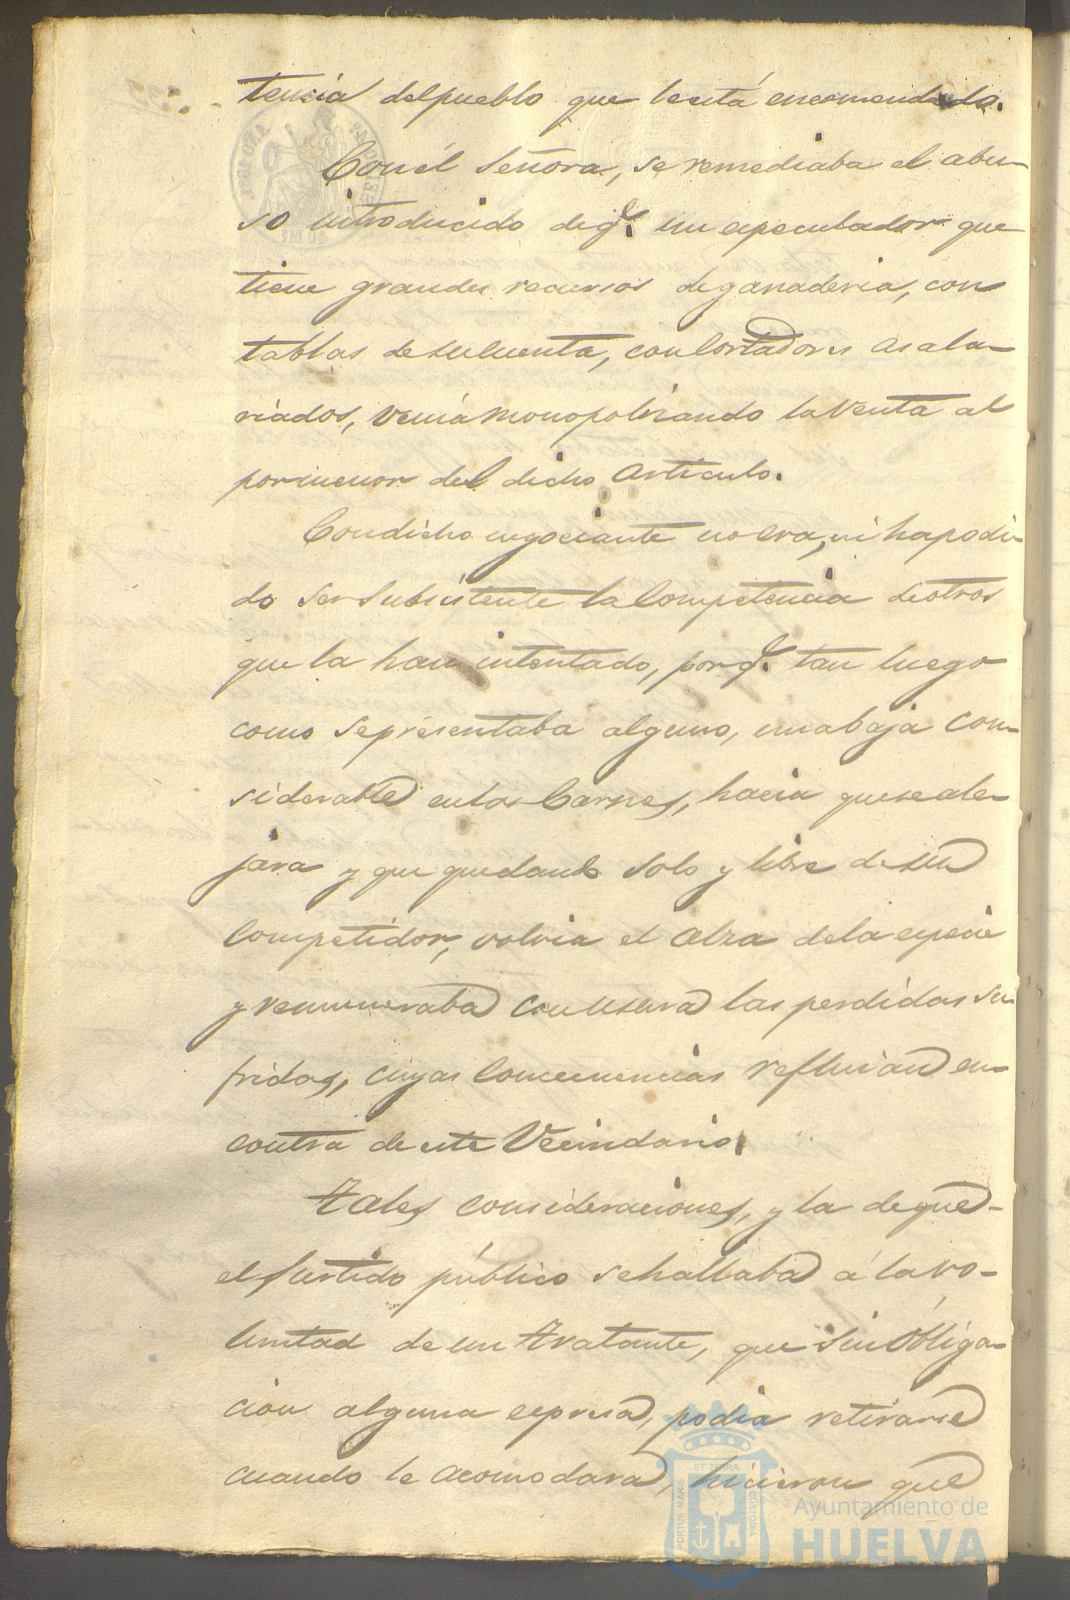 tencia del pueblo que le está encomendado.
Con él Señora, se remediaba el abu-
so introducido de q.e un especulador que
tiene grandes recursos de ganaderia, con
tablas de su cuenta, con Cortadores asala-
riados, venia monopolizando la venta al
por menor del dicho articulo.
Con dicho negociante no era, ni ha podi-
do ser subsistente la Competencia de otros
que la han intentado, por q.e tan luego
como se presentaba alguno, una baja con-
siderable en las Carnes, hacia que se ale-
jara y que quedando solo y libre de su
Competidor, volvia el alza de la especie
y remuneraba con usura las perdidas su-
fridas, cuyas Consecuencias refluian en
contra de este Vecindario.
Tales consideraciones, y la de que
el surtido público se hallaba á la vo-
luntad de un tratante, que sin Obliga-
cion alguna espresa, podia retirarse
cuando le acomodara, hicieron que
ET TERRA
PORTUS MARIS
CUSTODIA
Ayuntamiento de
HUELVA